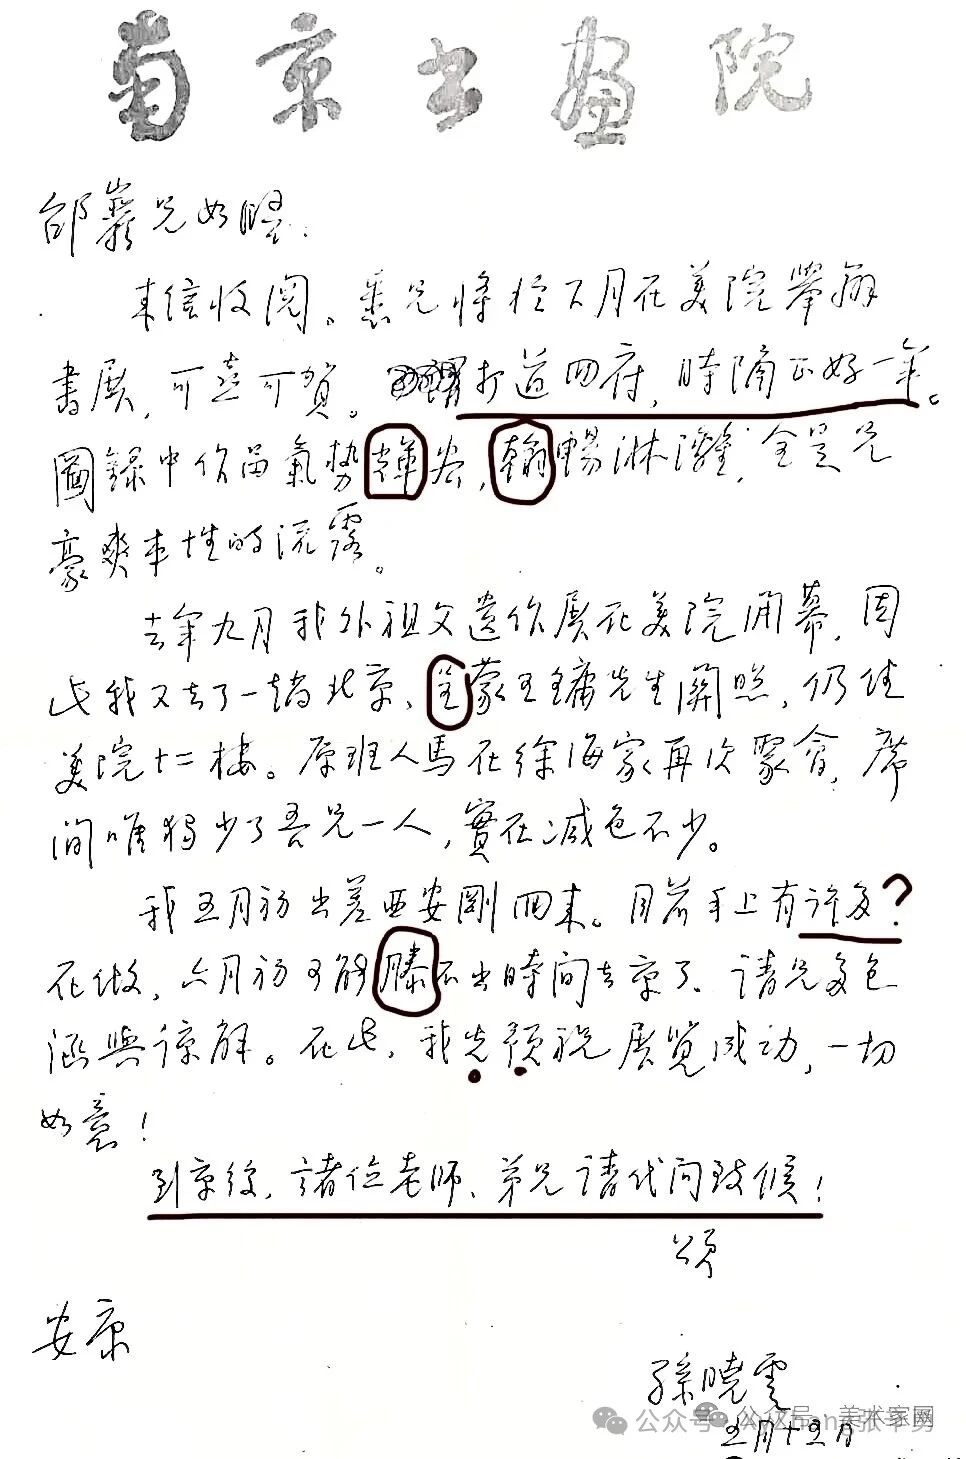 南京书画院
邵巖兄如晤：
來信收閱。悉兄將於下月在美院舉辦
書展，可喜可賀。打道回府，時隔正好一年。
圖錄中作品氣勢，暢淋灕，全是兄
豪爽本性的流露。
去年九月我外祖父遺作展在美院開幕，因
此我又去了一趟北京，蒙王鏞先生關照，仍住
美院十二樓。原班人馬在徐海家再次聚會，席
間唯獨少了吾兄一人，實在减色不少。
我五月初出差西安剛回來。目前手上有許多？
在做，六月初可能不出時间去京了，請兄多包
涵與諒解。在此，我先預祝展覽成功，一切
如意！
到京後，諸位老师、弟兄請代问致候！
頌
安康
孫曉雲
五月十五日
公众号
公众号 美术家网